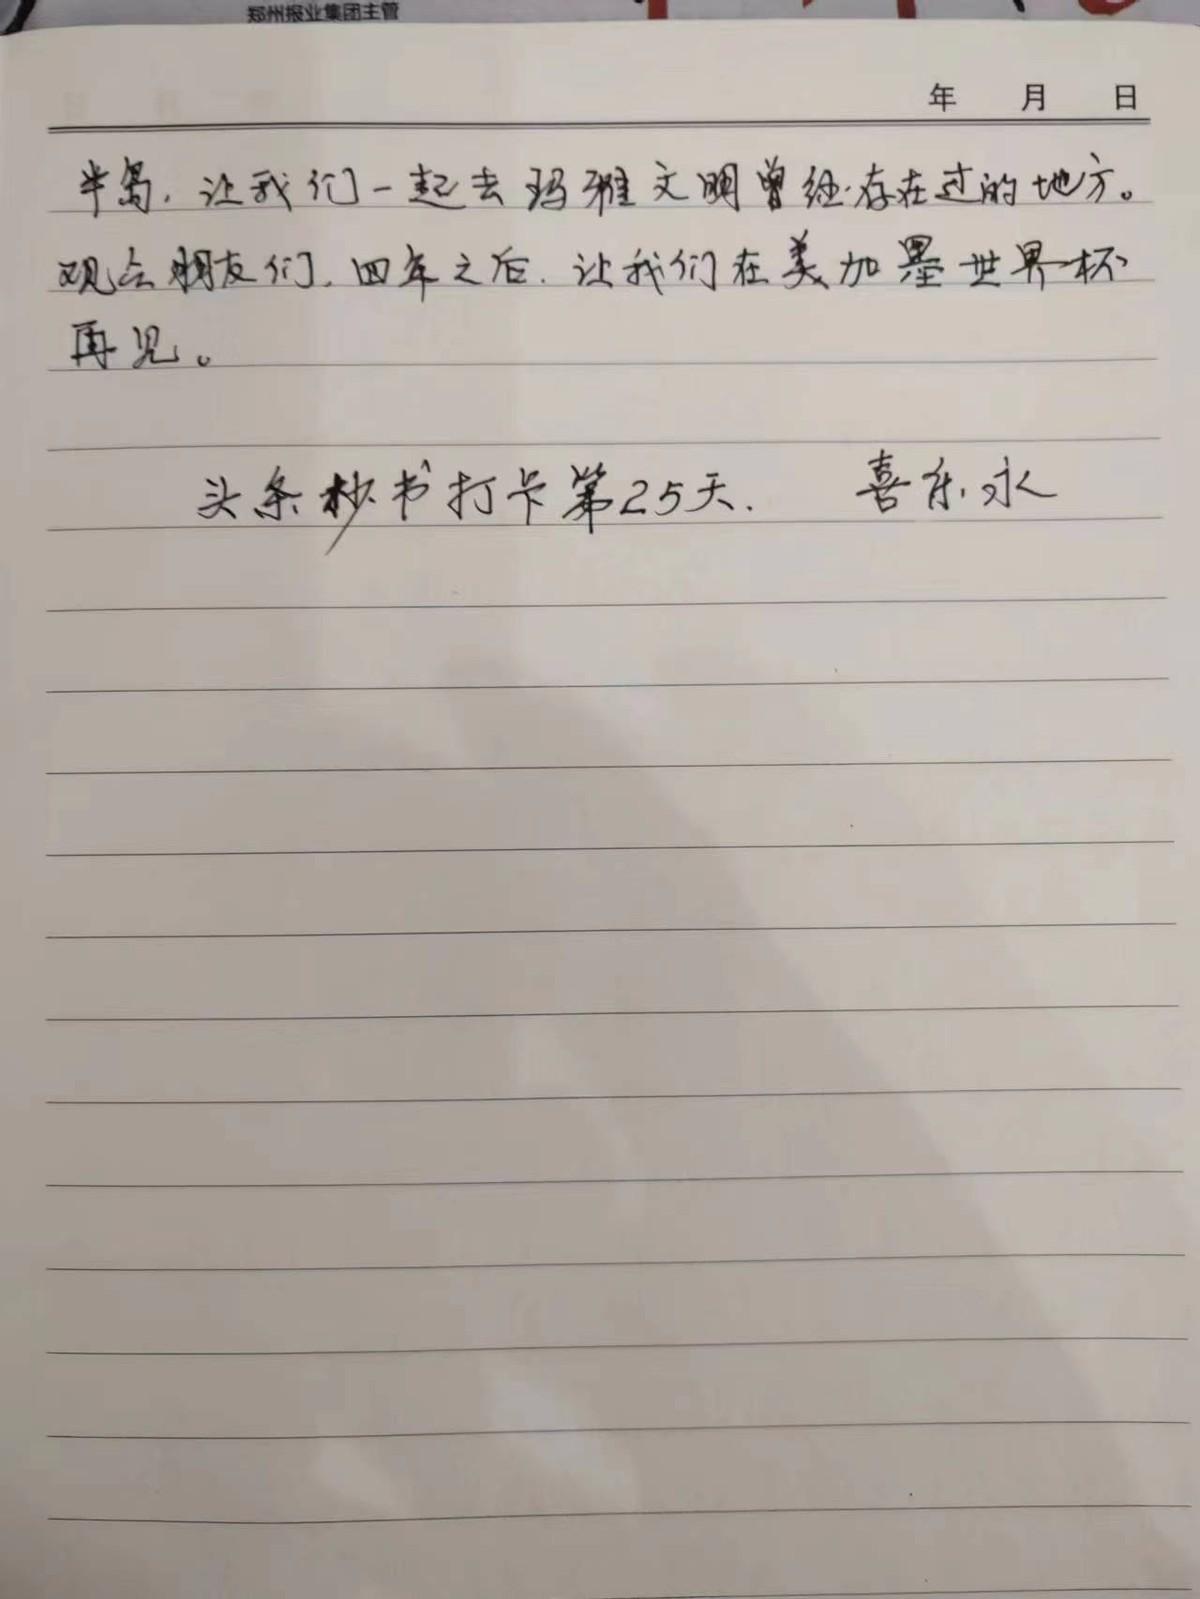 郑州报业集团主管
年 月 日
半岛，让我们一起去玛雅文明曾经存在过的地方。
观众朋友们，四年之后，让我们在美加墨世界杯
再见。
头条抄书打卡第25天. 喜乐永